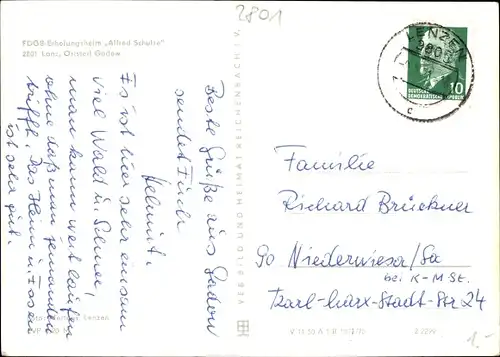 2801
FDGB-Erholungsheim „Alfred Schulze"
2801 Lanz, Ortsteil Gadow
Beste Grüße aus Gadow
sendet Euch
Helmut.
Es ist hier sehr einsam
viel Wald u. Schnee,
man kann weit laufen
ohne daß man jemanden
trifft. Das Heim u. Essen
ist sehr gut.
VEB BILD UND HEIMAT REICHENBACH I. V.
LENZEN
DEUTSCHE
DEMOKRATISCHE REPUBLIK
10
Familie
Richard Brückner
90 Niederwiesa/Sa
bei K-M-St.
Karl-Marx-Stadt-Str 24
Lenzen
1.-